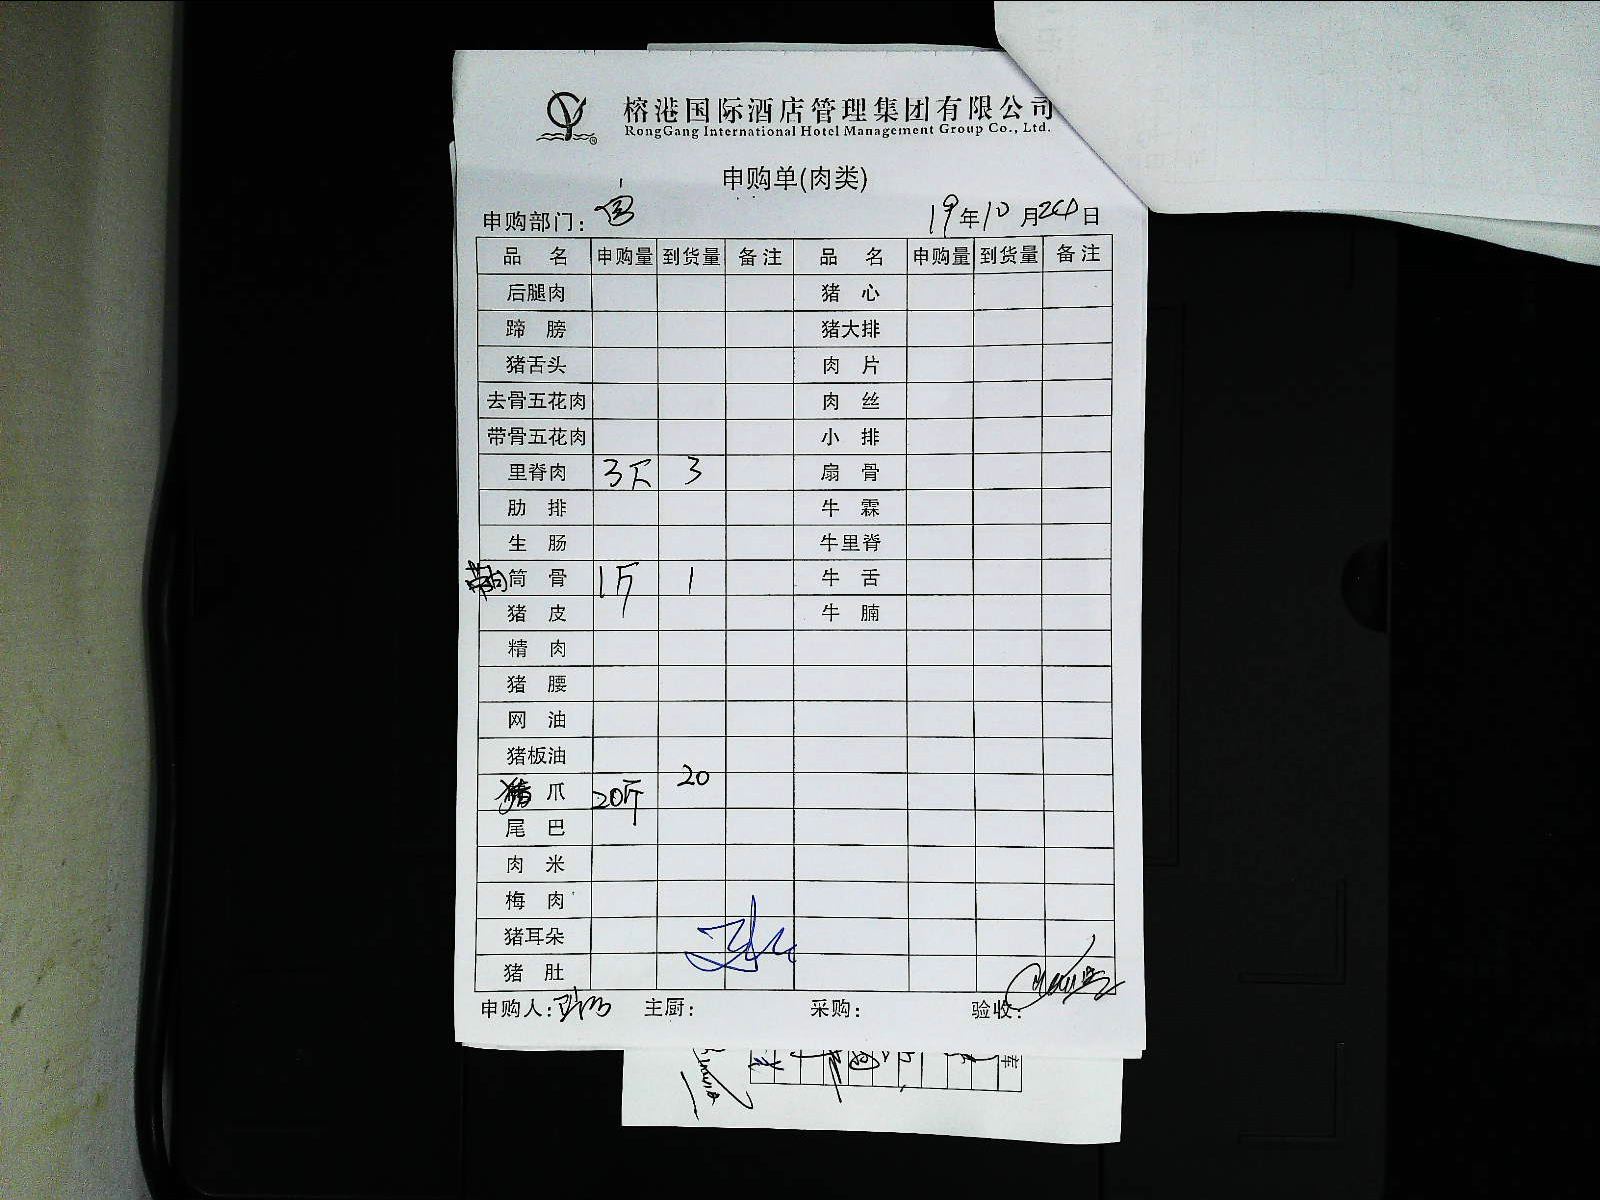 榕港国际酒店管理集团有限公司
RongGang International Hotel Management Group Co., Ltd.
申购单(肉类)
申购部门: 19年10月24日
品名 申购量 到货量 备注 品名 申购量 到货量 备注
后腿肉 猪心
蹄膀 猪大排
猪舌头 肉片
去骨五花肉 肉丝
带骨五花肉 小排
里脊肉 3斤 3 扇骨
肋排 牛霖
生肠 牛里脊
筒骨 1斤 1 牛舌
猪皮 牛腩
精肉
猪腰
网油
猪板油
猪爪 20斤 20
尾巴
肉米
梅肉
猪耳朵
猪肚
申购人: 主厨: 采购: 验收: